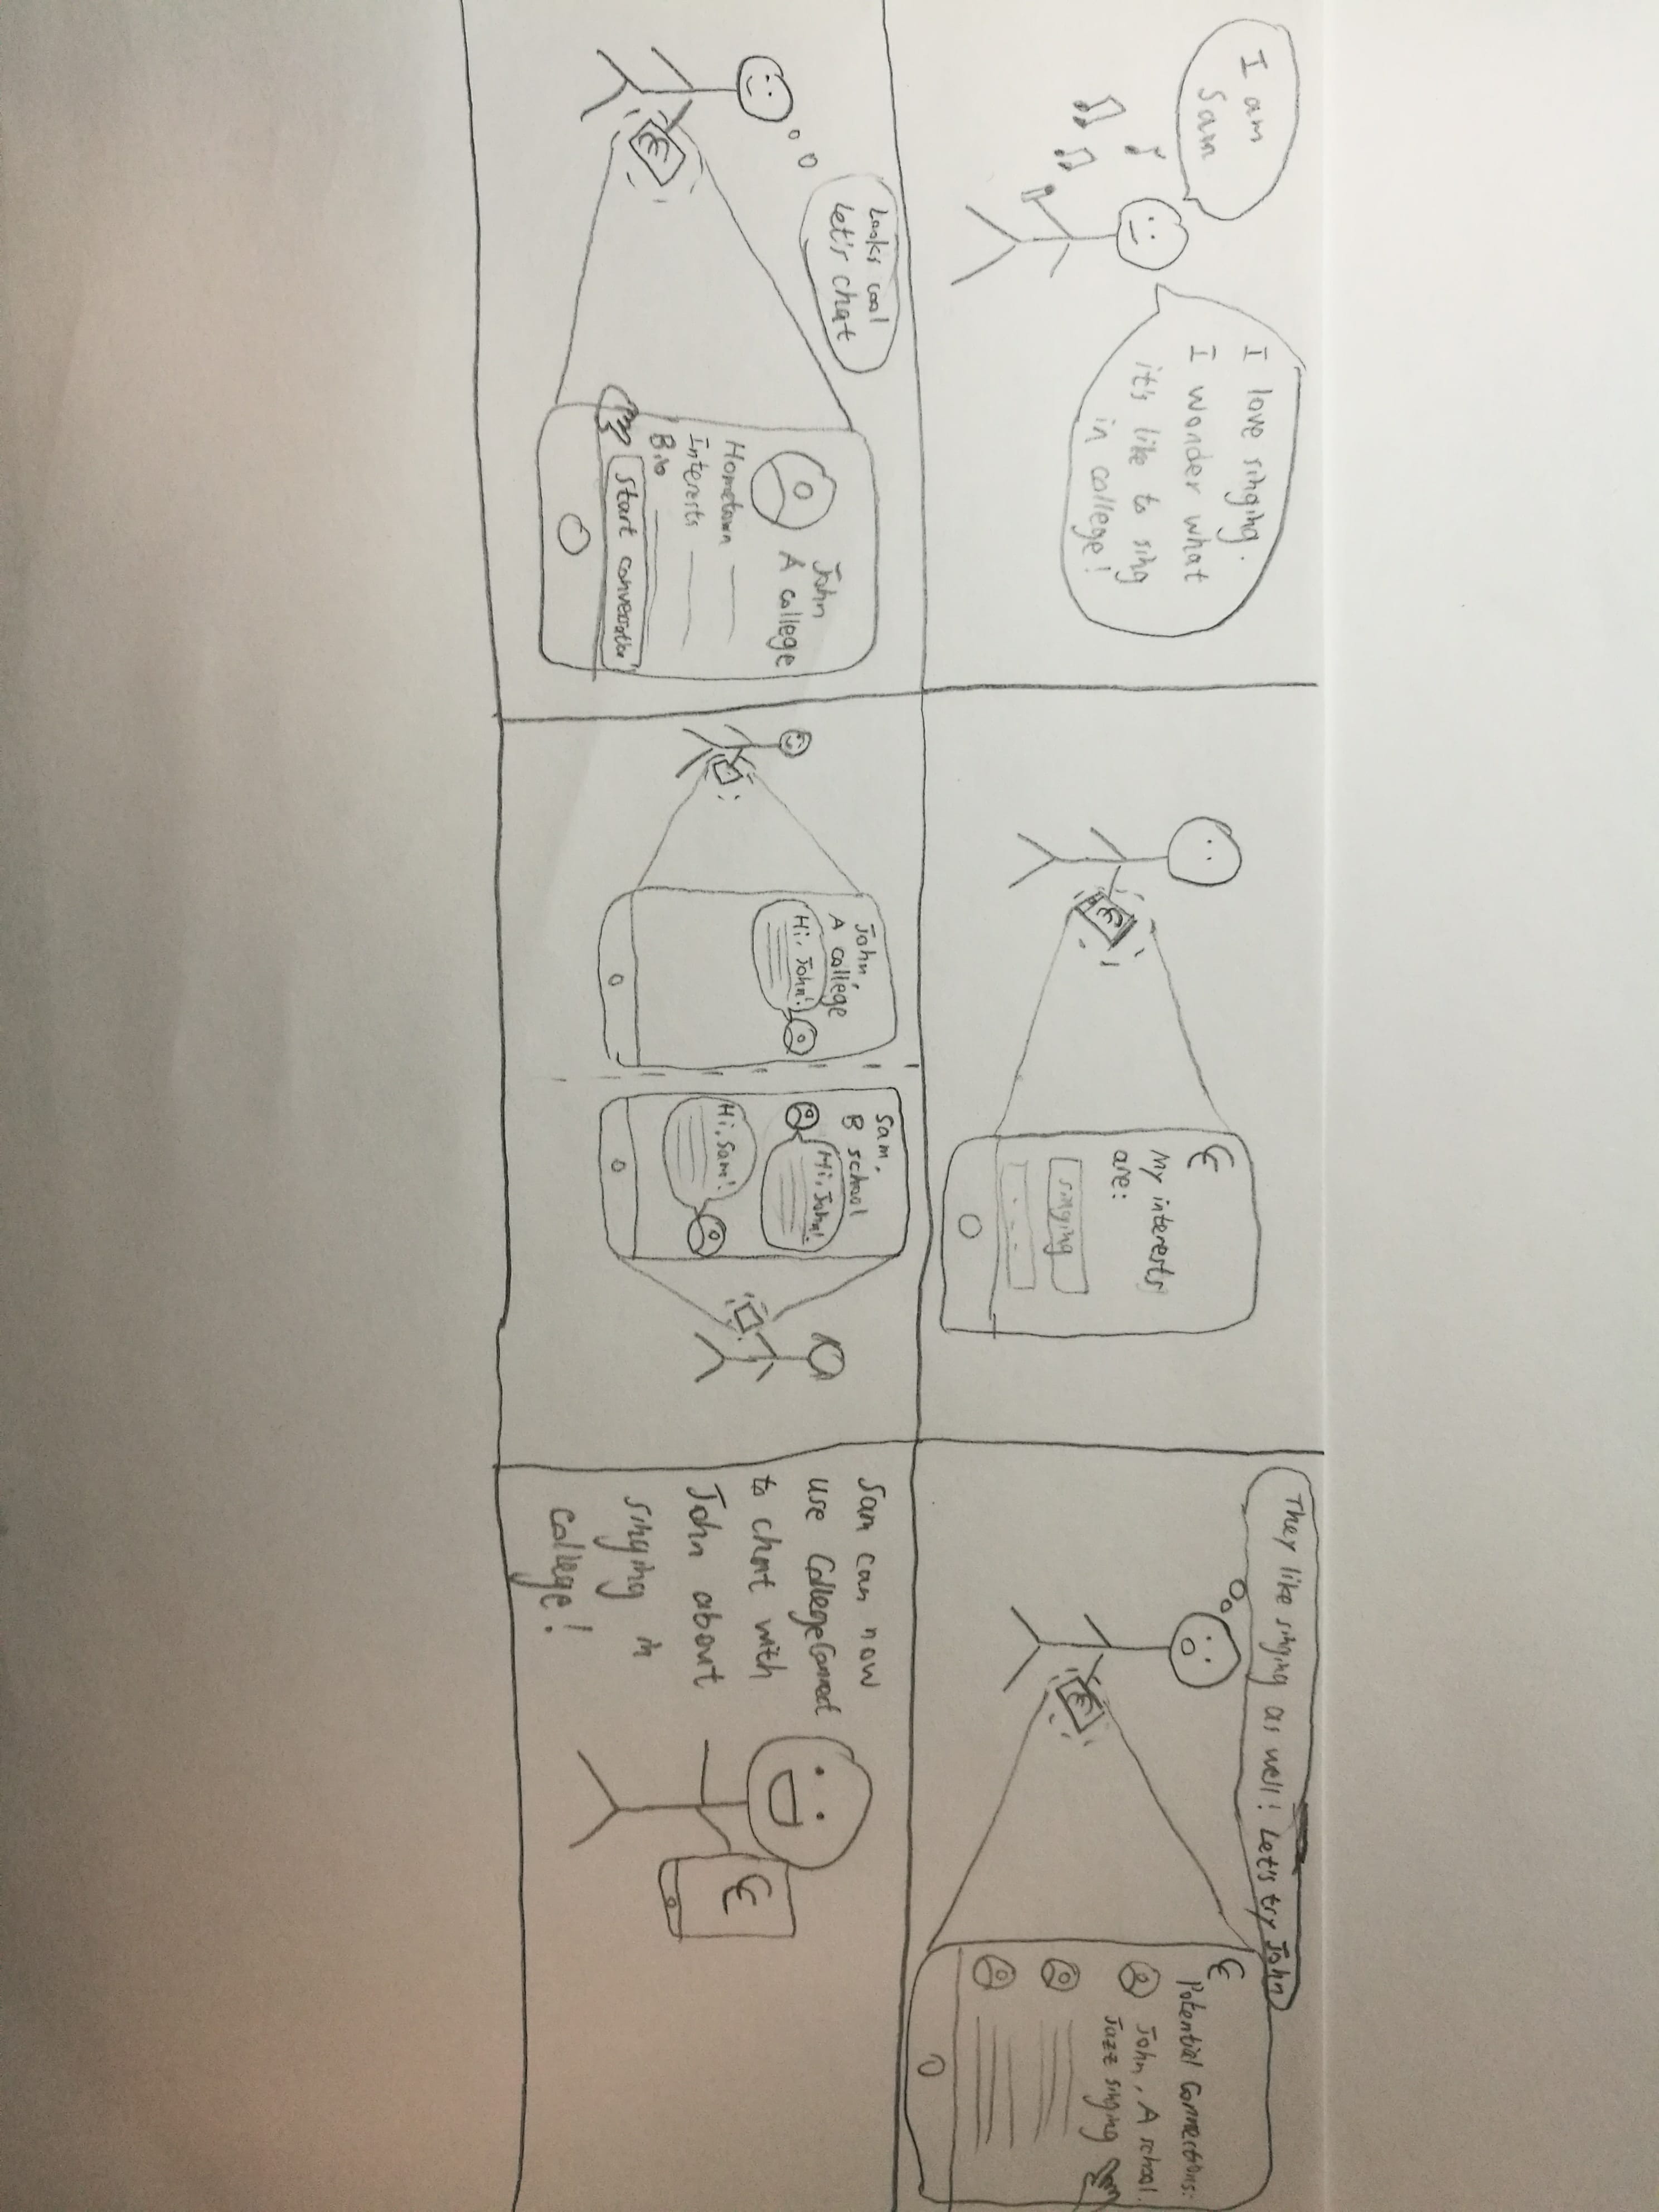 I am
Sam
I love singing.
I wonder what
it's like to sing
in college!
My interests
are:
singing
They like singing as well! Let's try John
Potential Connections:
John, A school.
Jazz singing
Looks cool
Let's chat
John
A college
Hometown
Interests
Bio
Start conversation
John,
A college
Hi, John!
Sam,
B school
Hi, John!
Hi, Sam!
Sam can now
use CollegeConnect
to chat with
John about
singing in
college!